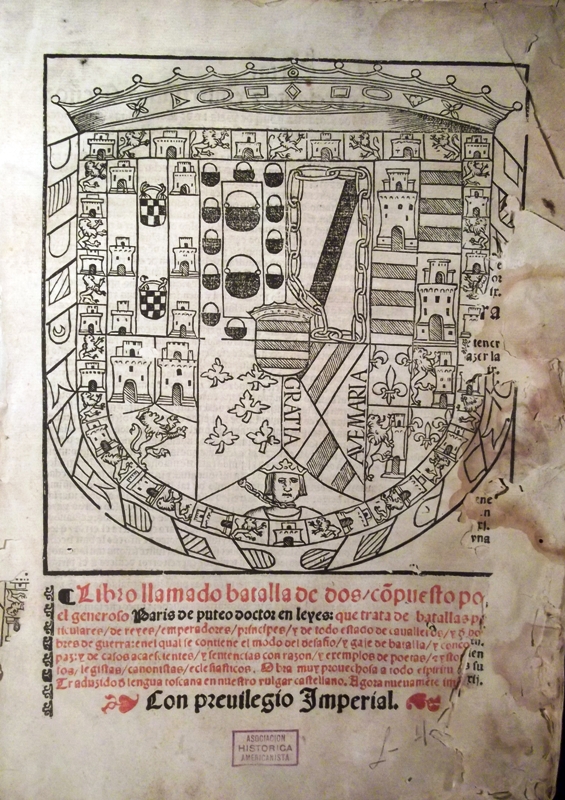 GRATIA
AVEMARIA
Libro llamado batalla de dos/cõpuesto po
el generoso Paris de puteo doctor en leyes: que trata de batallas p
ticulares/de reyes/emperadores/principes/y de todo estado de caualleros/y
bres de guerra: enel qual se contiene el modo del desafio/y gaje de batalla/y
paz: y de casos acaescientes/y sentencias con razon/y exemplos de poetas/
los/legistas/canonistas/eclesiasticos. Obra muy prouechosa a todo espiritu
Traduzido ð lengua toscana en nuestro vulgar castellano. Agora nueuamēte
Con preuilegio Imperial.
ASOCIACION
HISTORICA
AMERICANISTA
tener